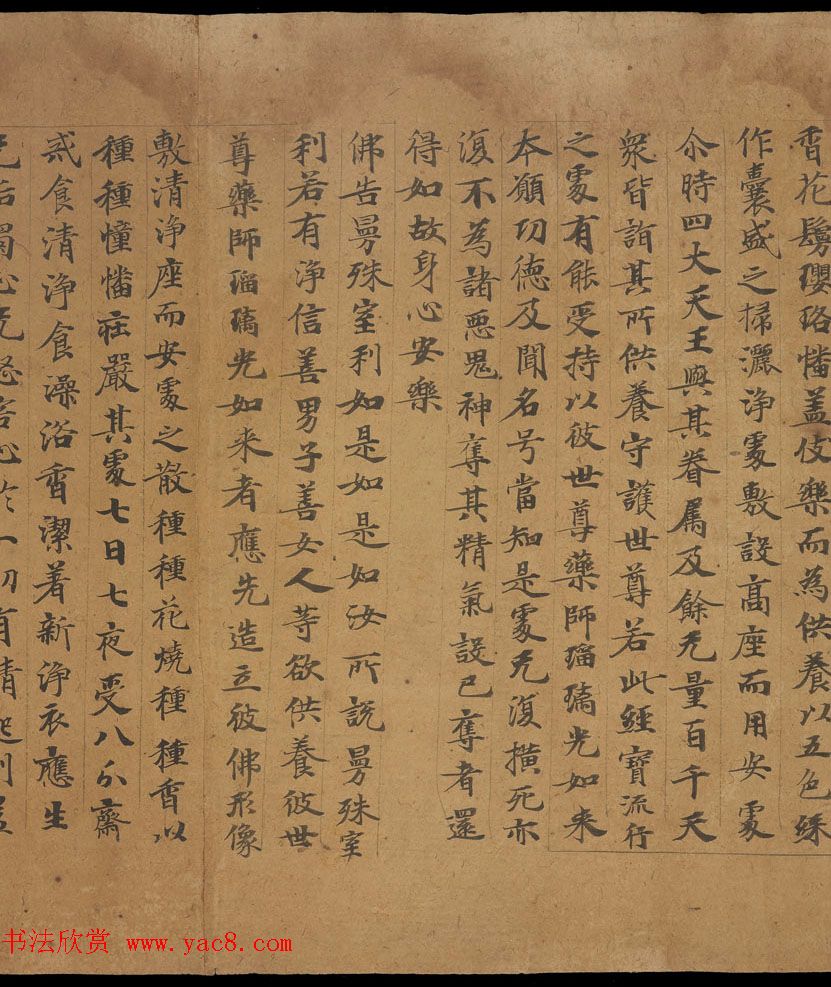 香花鬘瓔珞幡盖伎樂而為供養以五色綵
作囊盛之掃灑淨處敷設髙座而用安處
尒時四大天王與其眷属及餘无量百千天
衆皆詣其所供養守護世尊若此經寶流行
之處有能受持以彼世尊藥師瑠璃光如来
本願功德及聞名号當知是處无復横死亦
復不為諸惡鬼神奪其精氣設已奪者還
得如故身心安樂
佛告曼殊室利如是如是如汝所説曼殊室
利若有淨信善男子善女人等欲供養彼世
尊藥師瑠璃光如来者應先造立彼佛形像
敷清淨座而安處之散種種花燒種種香以
種種幢幡莊嚴其處七日七夜受八分齋
戒食清淨食澡浴香潔著新淨衣應生
无垢濁心无怒害心於一切有情起利益
书法欣赏 www.yac8.com